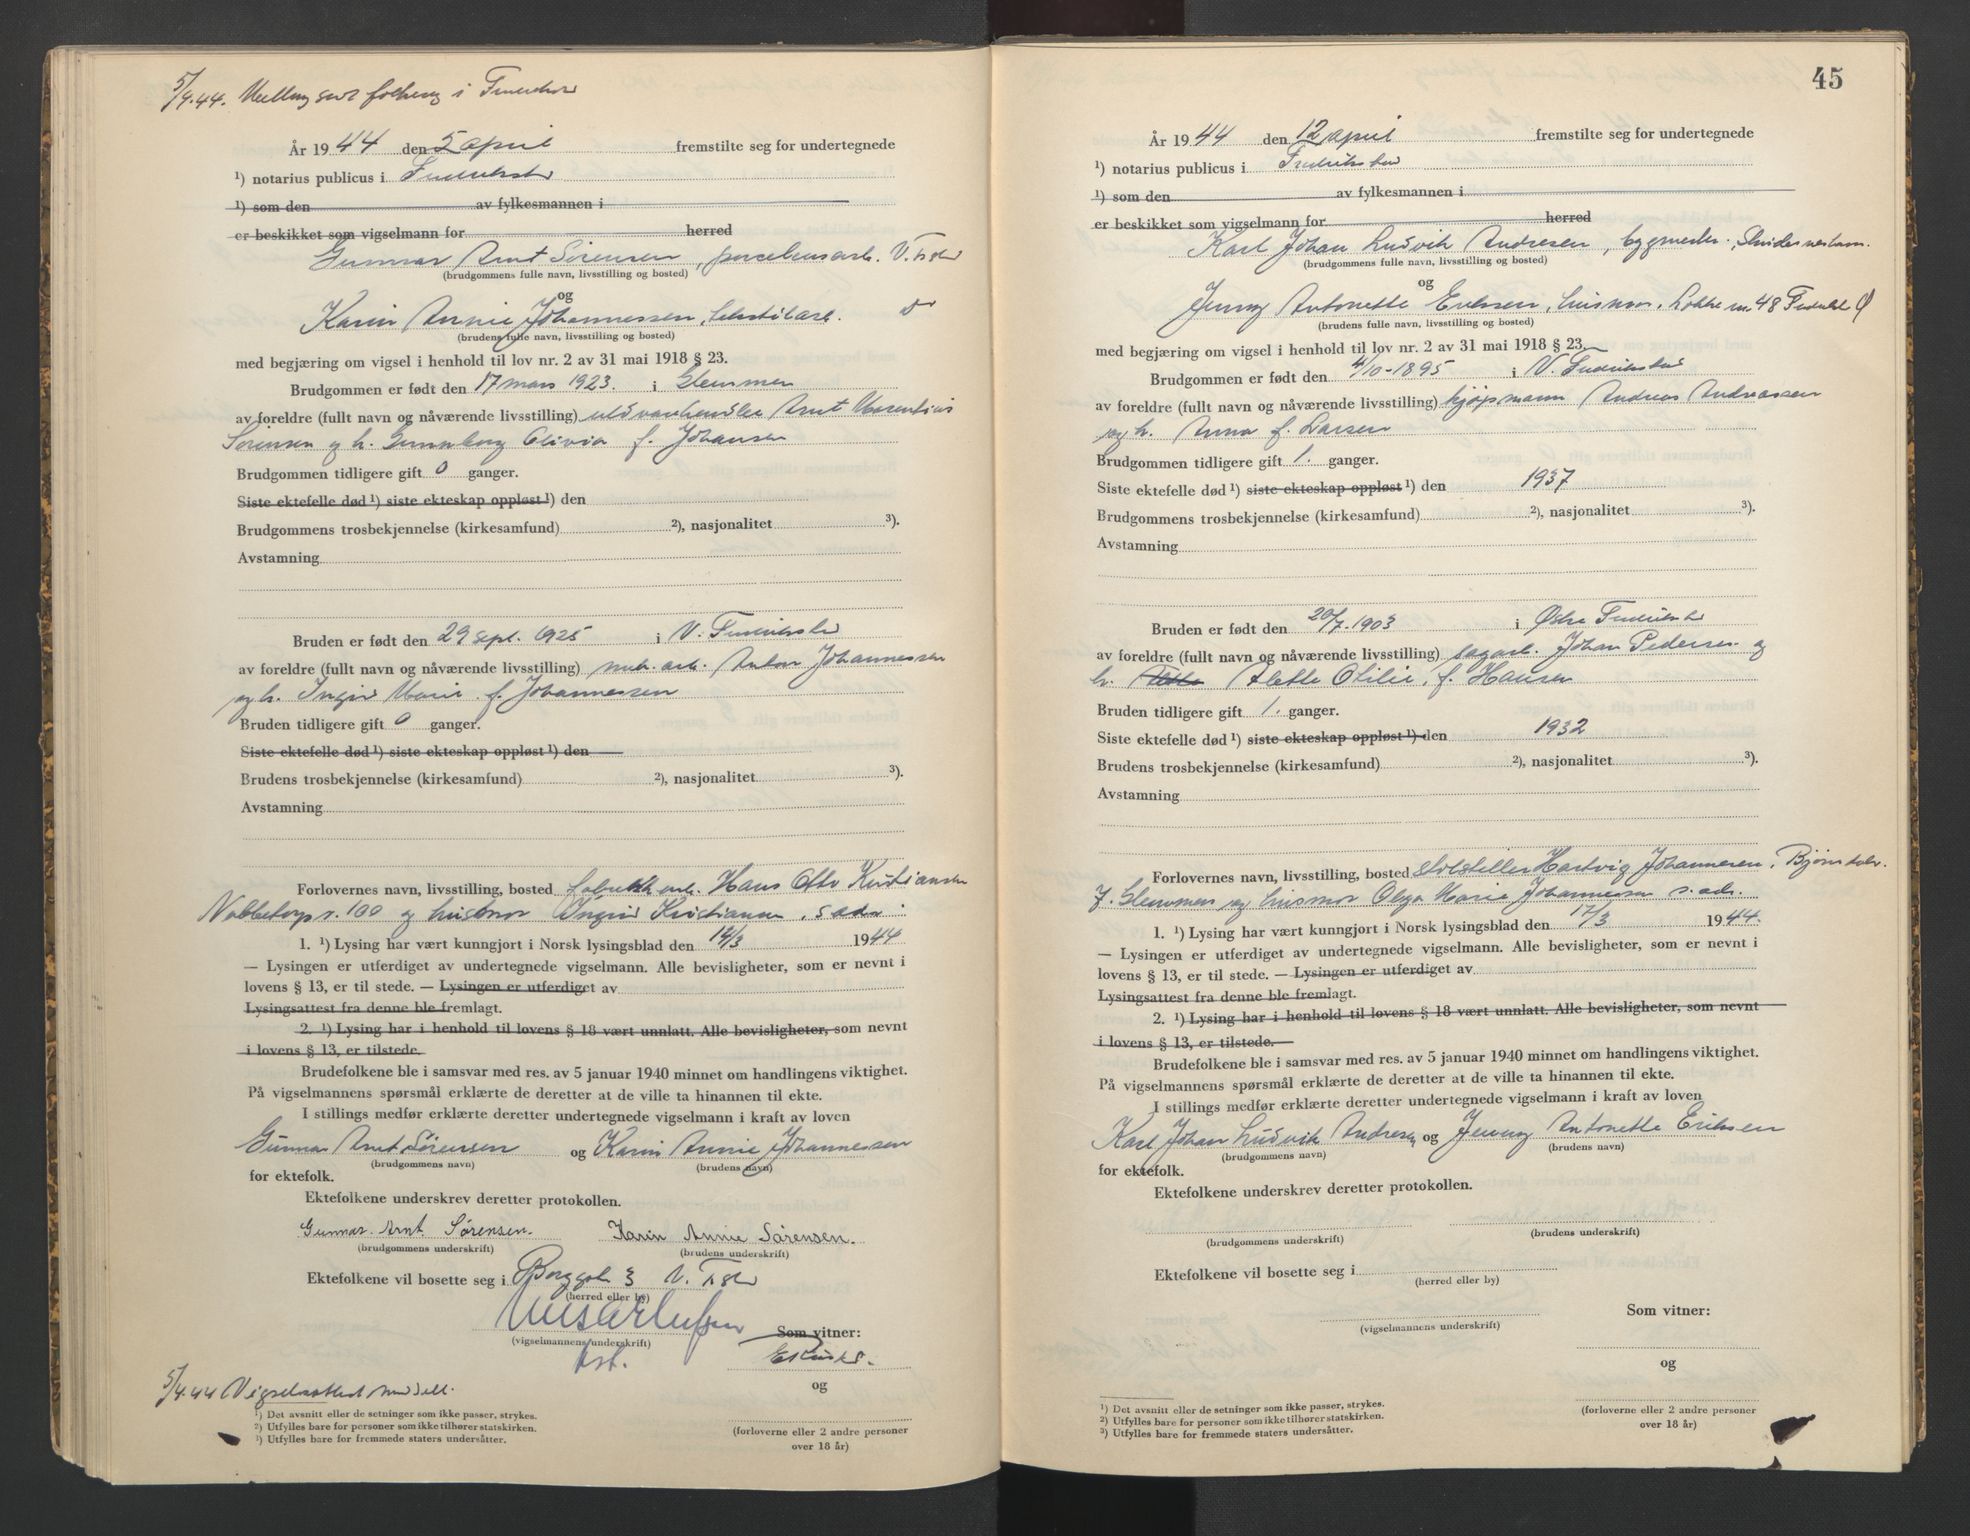 5/4.44. Melding sent folkereg i Fredrikstad
År 1944 den 5 april fremstilte seg for undertegnede
¹) notarius publicus i Fredrikstad
¹) som den av fylkesmannen i
er beskikket som vigselmann for herred
Gunnar Arnt Sörensen, porcelensarb. V. Fr.stad
(brudgommens fulle navn, livsstilling og bosted)
og
Karin Annie Johannessen, tekstilarb. do
(brudens fulle navn, livsstilling og bosted)
med begjæring om vigsel i henhold til lov nr. 2 av 31 mai 1918 § 23.
Brudgommen er født den 17 mars 1923. i Glemmen
av foreldre (fullt navn og nåværende livsstilling) uldvarehandler Arnt Marentius
Sörensen og h. Gunnborg Olivia f. Johansen
Brudgommen tidligere gift 0 ganger.
Siste ektefelle død ¹) siste ekteskap oppløst ¹) den
Brudgommens trosbekjennelse (kirkesamfund) ²), nasjonalitet ³).
Avstamning
Bruden er født den 29 sept. 1925 i V. Fredrikstad
av foreldre (fullt navn og nåværende livsstilling) mek. arb. Anton Johannessen
og h. Ingrid Marie f. Johannessen
Bruden tidligere gift 0 ganger.
Siste ektefelle død ¹) siste ekteskap oppløst ¹) den
Brudens trosbekjennelse (kirkesamfund) ²), nasjonalitet ³).
Avstamning
Forlovernes navn, livsstilling, bosted fabrikkarb. Hans Otto Kristiansen
Nabbetorp s. 100 og husmor Ingrid Kristiansen, s adr.
1. ¹) Lysing har vært kunngjort i Norsk lysingsblad den 14/3 1944
— Lysingen er utferdiget av undertegnede vigselmann. Alle bevisligheter, som er nevnt i
lovens § 13, er til stede. — Lysingen er utferdiget av
Lysingsattest fra denne ble fremlagt.
2. ¹) Lysing har i henhold til lovens § 18 vært unnlatt. Alle bevisligheter, som nevnt
i lovens § 13, er tilstede.
Brudefolkene ble i samsvar med res. av 5 januar 1940 minnet om handlingens viktighet.
På vigselmannens spørsmål erklærte de deretter at de ville ta hinannen til ekte.
I stillings medfør erklærte deretter undertegnede vigselmann i kraft av loven
Gunnar Arnt Sörensen og Karin Annie Johannessen
(brudgommens navn) (brudens navn)
for ektefolk.
Ektefolkene underskrev deretter protokollen.
Gunnar Arnt Sörensen. Karin Annie Sörensen.
(brudgommens underskrift) (brudens underskrift)
Ektefolkene vil bosette seg i Borggt. 3 V. Fr.stad
(herred eller by)
(vigselmannens underskrift) Som vitner:
fst.
og
5/4.44 Vigselsattest meddelt.
¹) Det avsnitt eller de setninger som ikke passer, strykes.
²) Utfylles bare for personer som ikke tilhører statskirken.
³) Utfylles bare for fremmede staters undersåtter.
(forloverne eller 2 andre personer
over 18 år)
45
År 1944 den 12 april fremstilte seg for undertegnede
¹) notarius publicus i Fredrikstad
¹) som den av fylkesmannen i
er beskikket som vigselmann for herred
Karl Johan Ludvik Andresen, bygmester,
(brudgommens fulle navn, livsstilling og bosted)
og
Jenny Antonette Eriksen, husmor, 48 Fredrikst Ø
(brudens fulle navn, livsstilling og bosted)
med begjæring om vigsel i henhold til lov nr. 2 av 31 mai 1918 § 23.
Brudgommen er født den 4/10-1895 i V. Fredrikstad
av foreldre (fullt navn og nåværende livsstilling) kjøpmann Andreas Andreassen
og h. Anna f. Larsen
Brudgommen tidligere gift 1. ganger.
Siste ektefelle død ¹) siste ekteskap oppløst ¹) den 1937
Brudgommens trosbekjennelse (kirkesamfund) ²), nasjonalitet ³).
Avstamning
Bruden er født den 20/7.1903 i Östre Fredrikstad
av foreldre (fullt navn og nåværende livsstilling) sagarb. Johan Pedersen og
h. Alette Otilie, f. Hansen
Bruden tidligere gift 1. ganger.
Siste ektefelle død ¹) siste ekteskap oppløst ¹) den 1932
Brudens trosbekjennelse (kirkesamfund) ²), nasjonalitet ³).
Avstamning
Forlovernes navn, livsstilling, bosted Hartvig Johannesen,
Glemmen og husmor Olga Marie Johannessen s. adr.
1. ¹) Lysing har vært kunngjort i Norsk lysingsblad den 17/3 1944.
— Lysingen er utferdiget av undertegnede vigselmann. Alle bevisligheter, som er nevnt i
lovens § 13, er til stede. — Lysingen er utferdiget av
Lysingsattest fra denne ble fremlagt.
2. ¹) Lysing har i henhold til lovens § 18 vært unnlatt. Alle bevisligheter, som nevnt
i lovens § 13, er tilstede.
Brudefolkene ble i samsvar med res. av 5 januar 1940 minnet om handlingens viktighet.
På vigselmannens spørsmål erklærte de deretter at de ville ta hinannen til ekte.
I stillings medfør erklærte deretter undertegnede vigselmann i kraft av loven
Karl Johan Ludvik Andresen og Jenny Antonette Eriksen
(brudgommens navn) (brudens navn)
for ektefolk.
Ektefolkene underskrev deretter protokollen.
(brudgommens underskrift) (brudens underskrift)
Ektefolkene vil bosette seg i
(herred eller by)
(vigselmannens underskrift) Som vitner:
og
¹) Det avsnitt eller de setninger som ikke passer, strykes.
²) Utfylles bare for personer som ikke tilhører statskirken.
³) Utfylles bare for fremmede staters undersåtter.
(forloverne eller 2 andre personer
over 18 år)